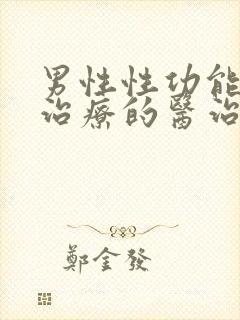 男性性功能
治療的醫治
鄭金發